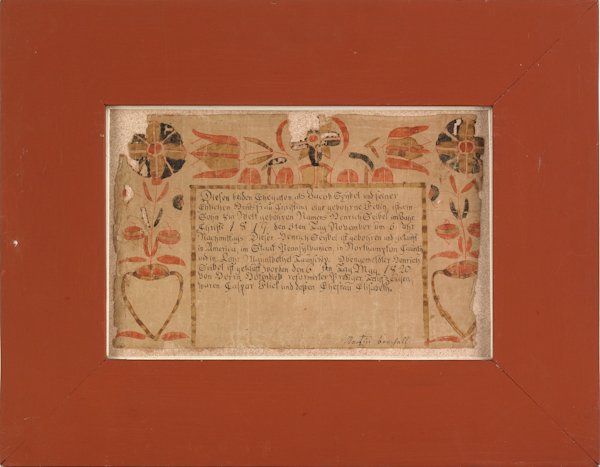 Diesen beiden Ehegatten als Jacob Seybel und seiner
Ehlichen Hausfrau Christina eine gebohrne ist ein
Sohn zur Welt gebohren Namens Henrich Seibel im Jahr
Christi 1819, den Tag November um 6 Uhr
Nachmittags. Dieser Henrich Seybel ist gebohren und getauft
in America, im Staat Pensylvanien, in Northampton County
und in Taunschip. Obengemeldter Henrich
Seibel ist getauft worden den 6 ten Tag May, 1820
Von Herrn reformirter Prediger, Taufzeugen
waren Caspar und dessen Ehefrau Elisabeth.
Martin